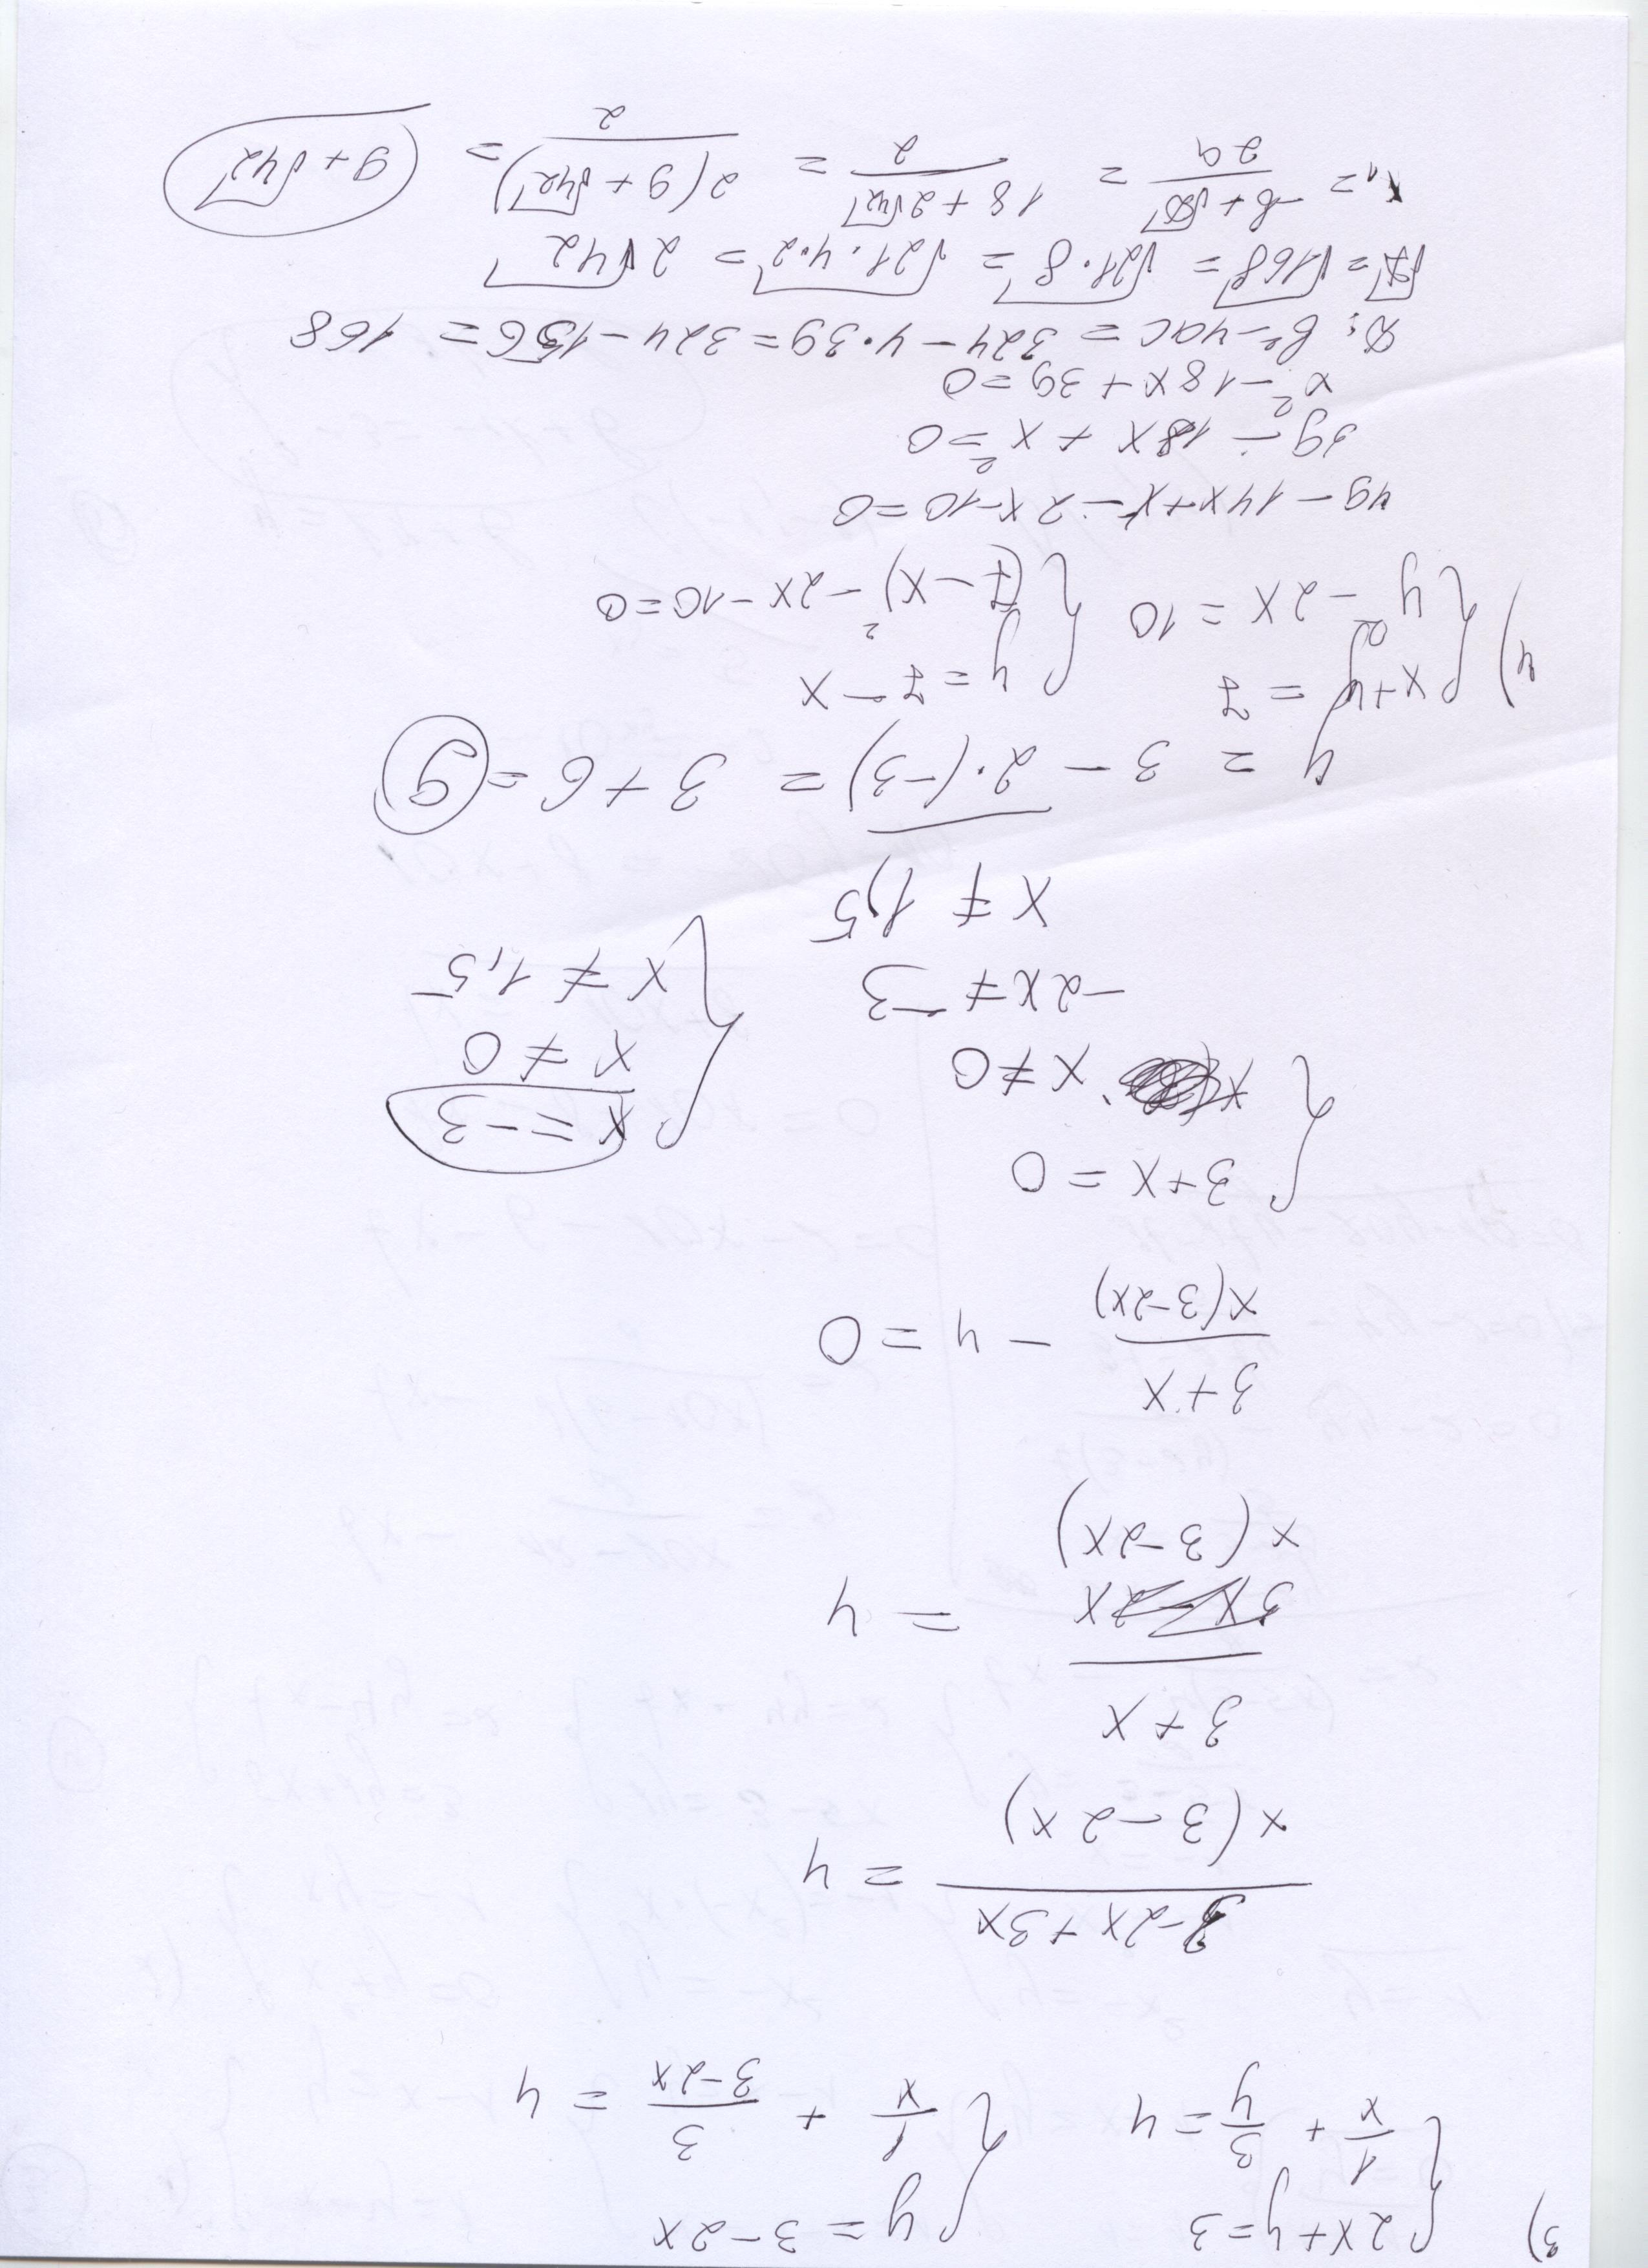 3) { 2x+y=3 { y = 3-2x
1/x + 3/y = 4 1/x + 3/(3-2x) = 4
3-2x+3x / x(3-2x) = 4
3+x / x(3-2x) = 4
3+x / x(3-2x) - 4 = 0
{ 3+x = 0 { x = -3
x ≠ 0 x ≠ 0
-2x ≠ -3 x ≠ 1,5
x ≠ 1,5
y = 3 - 2·(-3) = 3+6 = 9
4) { x+y = 7 { y = 7-x
y² - 2x = 10 (7-x)² - 2x - 10 = 0
49 - 14x + x² - 2x - 10 = 0
39 - 18x + x² = 0
x² - 18x + 39 = 0
D: b² - 4ac = 324 - 4·39 = 324 - 156 = 168
√D = √168 = √21·8 = √21·4·2 = 2√42
x₁ = -b+√D / 2a = 18+2√42 / 2 = 2(9+√42) / 2 = 9+√42